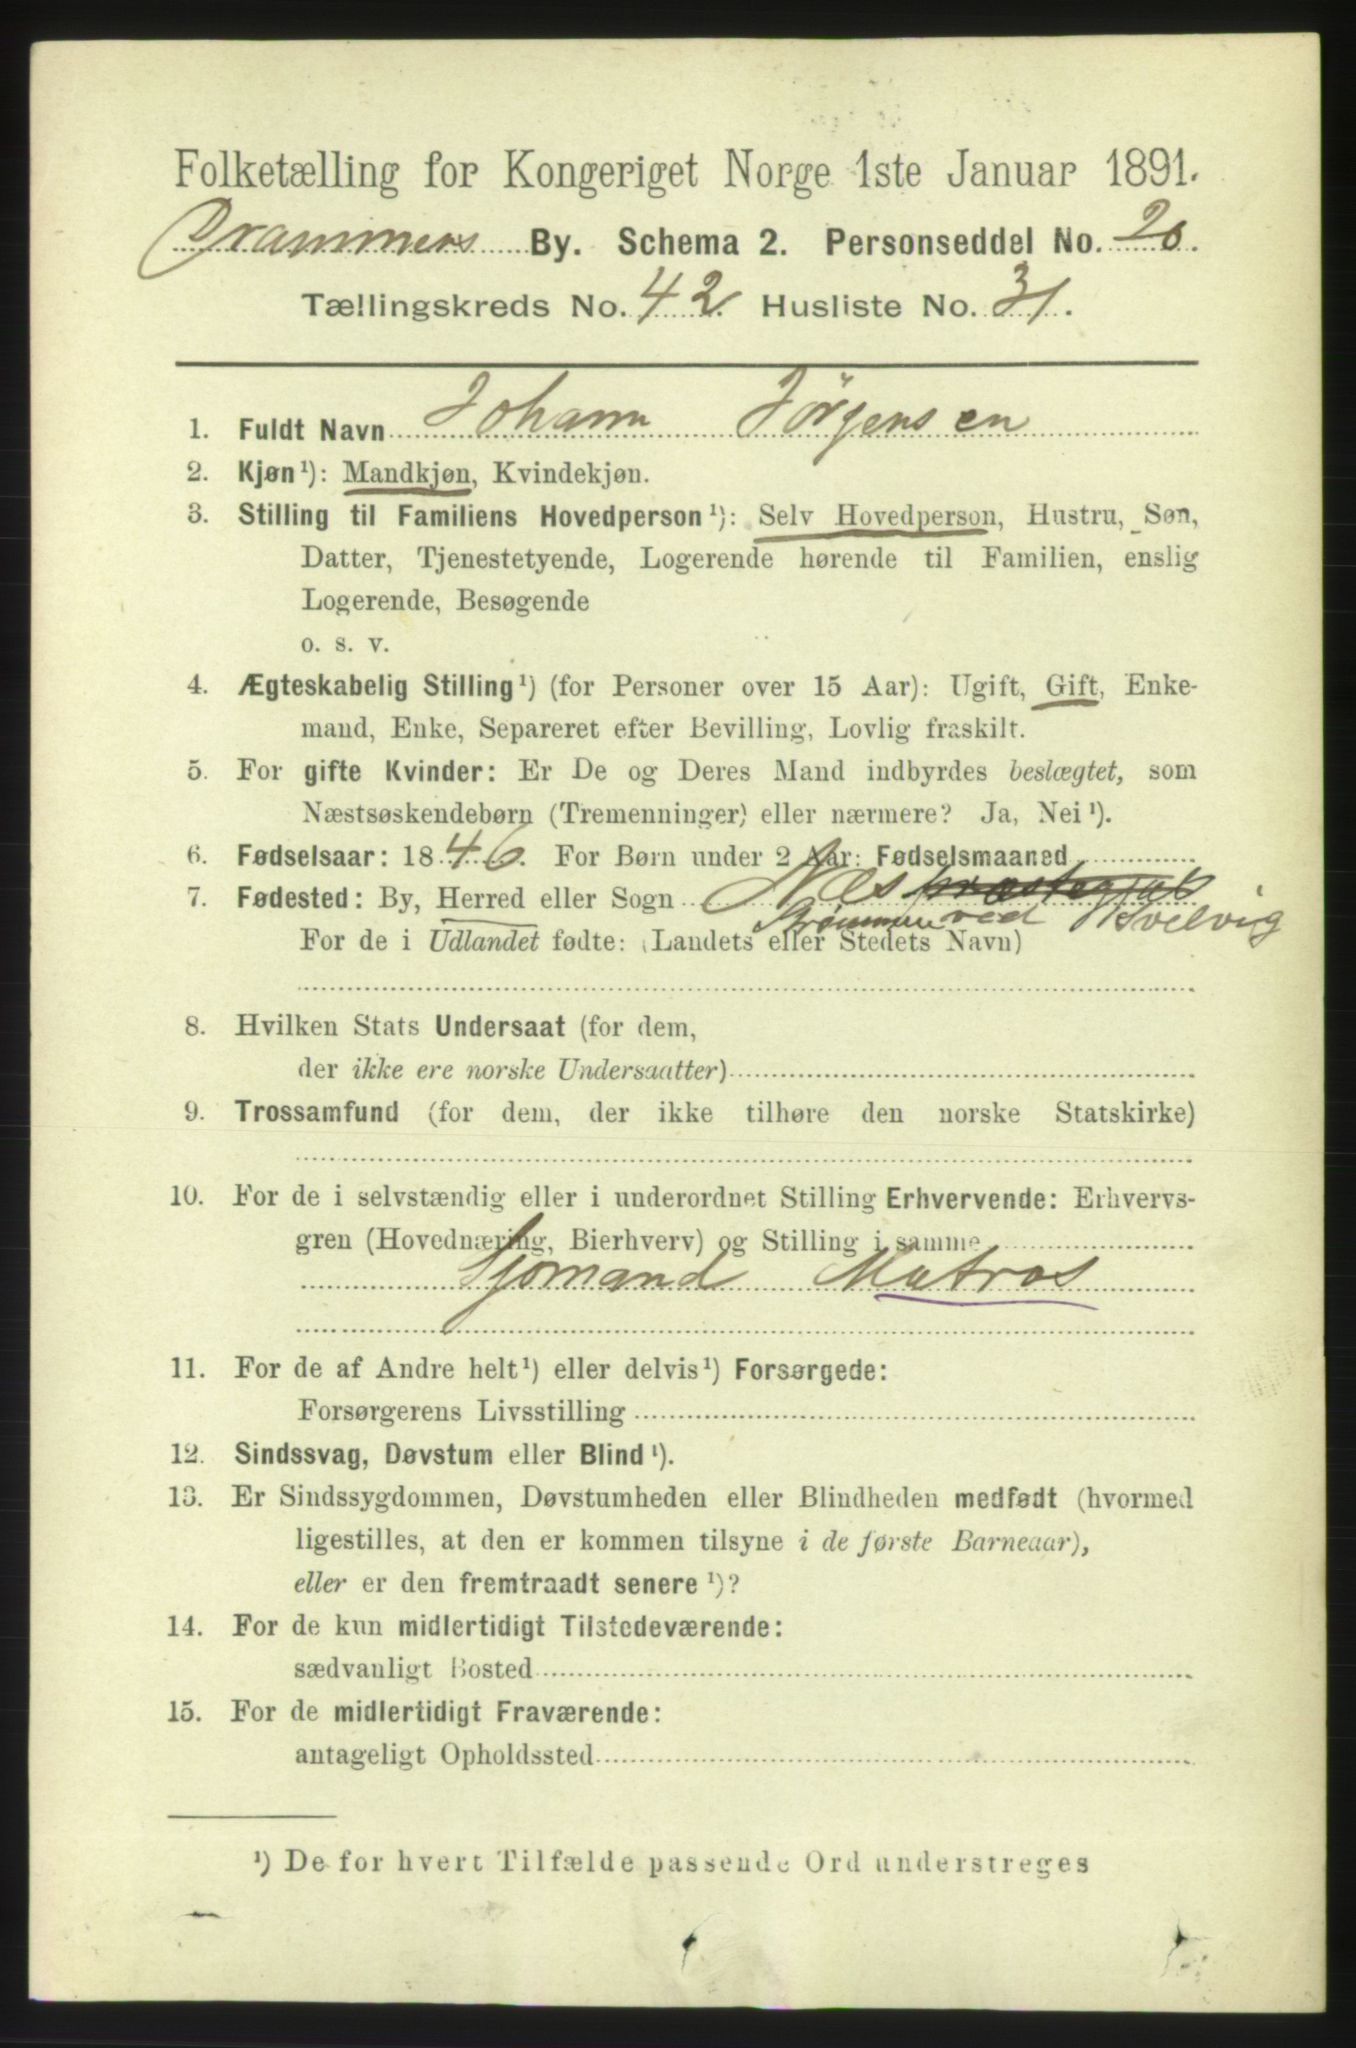 Folketælling for Kongeriget Norge 1ste Januar 1891.
Drammens By. Schema 2. Personseddel No. 20.
Tællingskreds No. 42. Husliste No. 31.
1. Fuldt Navn Johann Jörgensen
2. Kjøn¹): Mandkjøn, Kvindekjøn.
3. Stilling til Familiens Hovedperson¹): Selv Hovedperson, Hustru, Søn,
Datter, Tjenestetyende, Logerende hørende til Familien, enslig
Logerende, Besøgende
o. s. v.
4. Ægteskabelig Stilling¹) (for Personer over 15 Aar): Ugift, Gift, Enke-
mand, Enke, Separeret efter Bevilling, Lovlig fraskilt.
5. For gifte Kvinder: Er De og Deres Mand indbyrdes beslægtet, som
Næstsøskendebørn (Tremenninger) eller nærmere? Ja, Nei¹).
6. Fødselsaar: 1846. For Børn under 2 Aar: Fødselsmaaned
7. Fødested: By, Herred eller Sogn Næs præstegjæld
Strømmen ved Svelvig
For de i Udlandet fødte: (Landets eller Stedets Navn)
8. Hvilken Stats Undersaat (for dem,
der ikke ere norske Undersaatter)
9. Trossamfund (for dem, der ikke tilhøre den norske Statskirke)
10. For de i selvstændig eller i underordnet Stilling Erhvervende: Erhvervs-
gren (Hovednæring, Bierhverv) og Stilling i samme
Sjömand Matros
11. For de af Andre helt¹) eller delvis¹) Forsørgede:
Forsørgerens Livsstilling
12. Sindssvag, Døvstum eller Blind¹).
13. Er Sindssygdommen, Døvstumheden eller Blindheden medfødt (hvormed
ligestilles, at den er kommen tilsyne i de første Barneaar),
eller er den fremtraadt senere¹)?
14. For de kun midlertidigt Tilstedeværende:
sædvanligt Bosted
15. For de midlertidigt Fraværende:
antageligt Opholdssted
¹) De for hvert Tilfælde passende Ord understreges